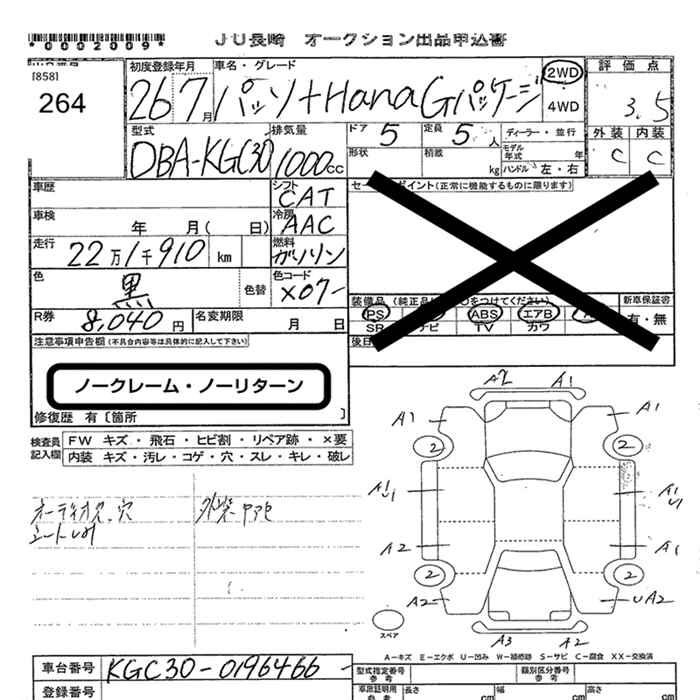 *0002009*
JU長崎 オークション出品申込書
[858]
264
初度登録年月
26 7月
車名・グレード
パッソ+HanaGパッケージ
2WD
4WD
評価点
3.5
外装 内装
C C
型式
DBA-KGC30
排気量
1000cc
ドア 5
定員 5人
形状
積載 kg
ディーラー・並行
モデル年式 年
ハンドル 左・右
車歴
シフト
CAT
車検 年 月( 日)
冷房
AAC
走行 22万1千910 km
燃料
ガソリン
色 黒
色替
色コード
X07-
R券 8,040円
名変期限 月 日
ポイント(正常に機能するものに限ります)
装備品
をつけてください)
新車保証書
有・無
PS
ABS
エアB
SR
TV
カワ
注意事項申告欄(不具合内容等は具体的に記入して下さい)
ノークレーム・ノーリターン
修復歴 有〔箇所 〕
検査員記入欄
FW キズ・飛石・ヒビ割・リペア跡・×要
内装 キズ・汚レ・コゲ・穴・スレ・キレ・破レ
A2 A1
A1 A1
2 2
A1
A2 A1
2 2
A2 UA2
A3 A2
スペア
A-キズ E-エクボ U-凹み W-補修跡 S-サビ C-腐食 XX-交換済
車台番号 KGC30-0196466-
登録番号
型式指定番号
参考
類別区分番号
参考
車庫証明用
参考
長さ cm
幅 cm
高さ cm